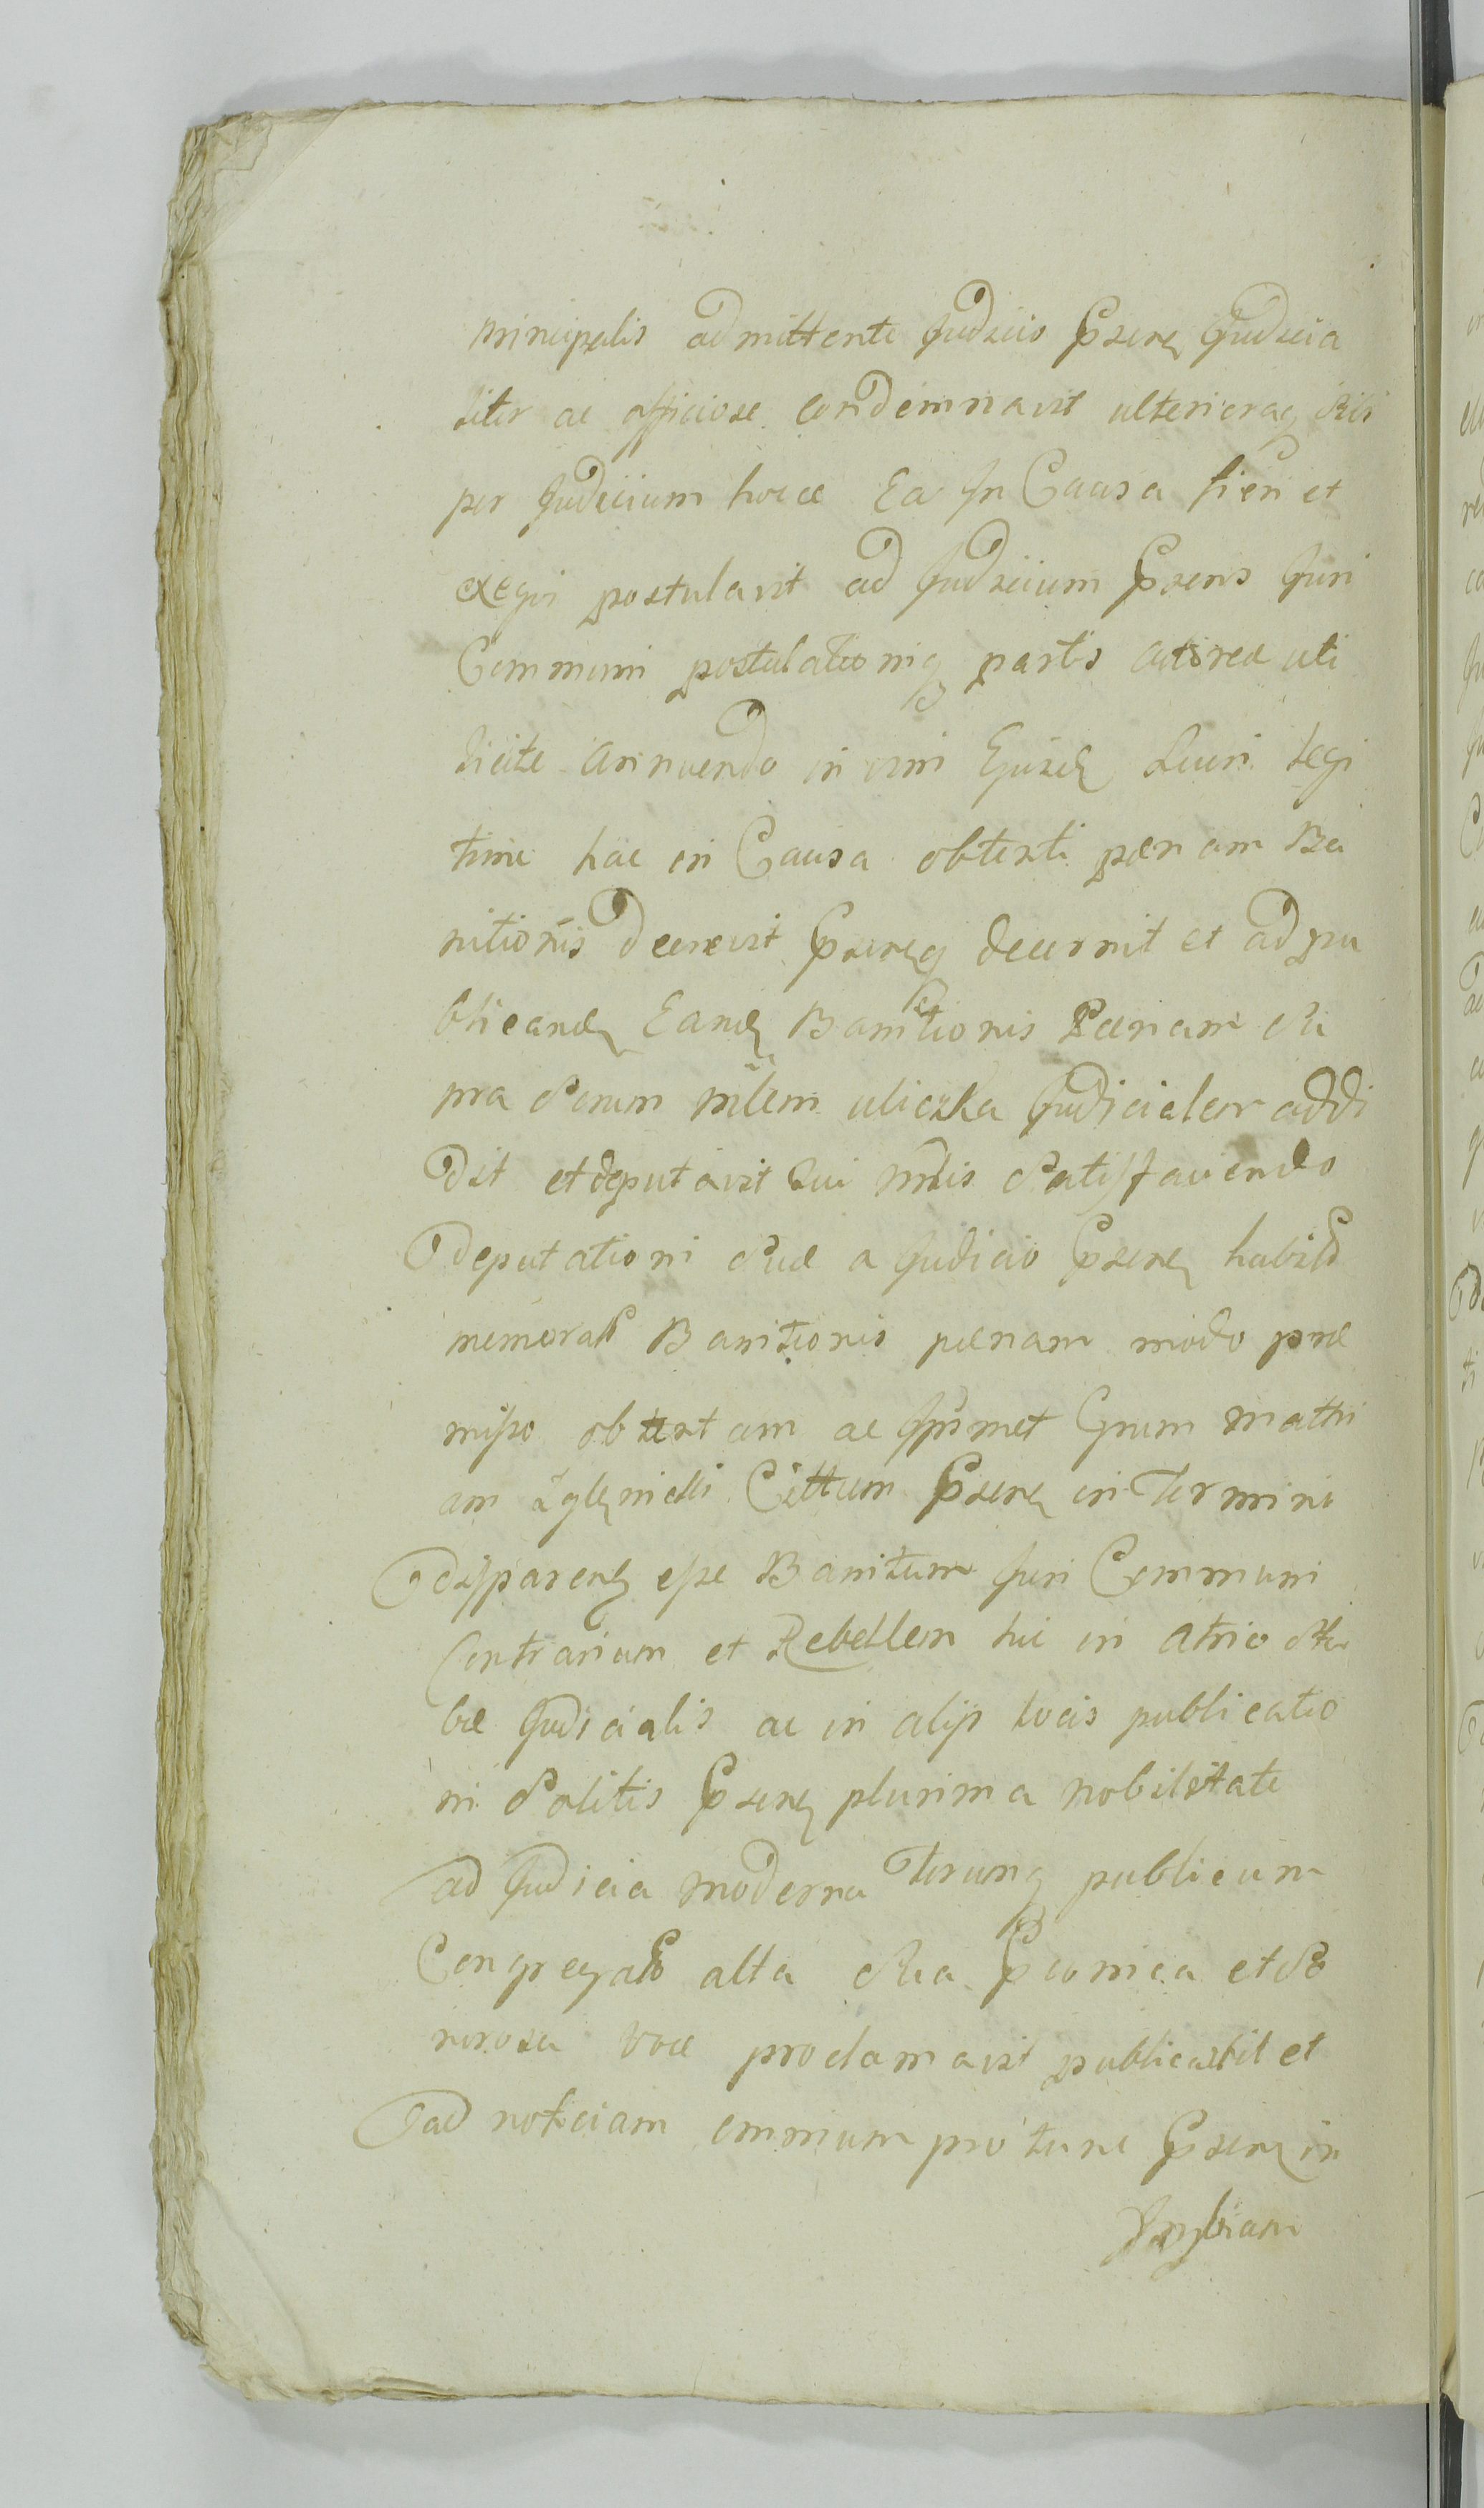 principalis admittente Judicio Pñtq Judicia
liter ac officiose condemnavit ulterioraq sibi
per Judicium hocce Ea In Causa fieri et
exegi postulavit ad Judicium Pñs Juri
Communi postulationiq partis actoreæ uti
licite annuendo in vim Ejusd Lucri legi
time hac in Causa obtenti pænam Ba
nitionis decrevit Pñtq decernit et ad pu
blicand Eand Banitionis Pænam su
pra Servum mlem uliczka Judicialem addi
dit et deputavit Qui mlis Satisfaciendo
deputationi Suæ a Judicio Pñtq habit
memorat Banitionis pænam modo præ
misso obtentam ac Ipsumet Gnum Mathi
am Cittum Pñtq in Termino
dispparen esse Banitum Juri Communi
Contrarium et Rebellem hic in Atrio Stu
bæ Judicialis ac in alijs locis publicatio
ni Solitis Pñtq plurima nobilitate
ad Judicia moderna Terumq publicum
Congregato alta Sua Pconica et So
norosa voce proclamavit publicavit et
ad noticiam omnium pro tunc Pñtq in